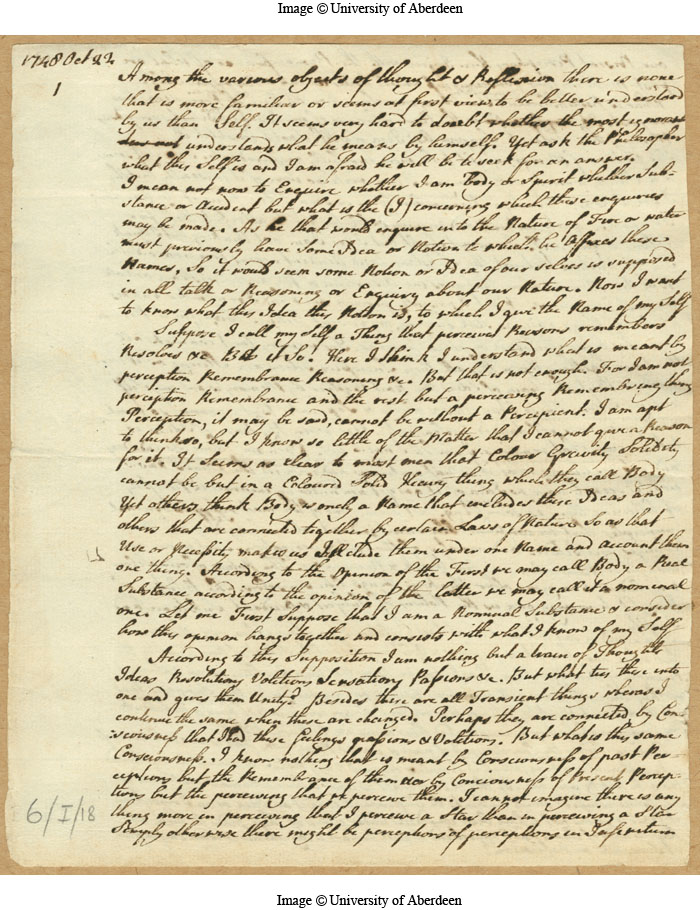 Image © University of Aberdeen
1748 Oct 22
1
Among the various objects of thought & Reflexion there is none
that is more familiar or seems at first view to be better understood
by us than Self. It seems very hard to doubt whether the most ignorant
understand what he means by himself. Yet ask the Philosopher
what this Self is and I am afraid he will be to seek for an answer.
I mean not now to Enquire whether I am Body or Spirit whether Sub-
stance or Accident but what is the (I) concerning which these enquiries
may be made. As he that would enquire into the Nature of Fire or water
must previously have some Idea or Notion to which he affixes these
Names, So it would seem some Notion or Idea of our selves is supposed
in all talk or Reasoning or Enquiry about our Nature. Now I want
to know what this Idea this Notion is, to which I give the Name of my Self
Suppose I call my self a Thing that perceives Reasons remembers
Resolves &c Be it So. Here I think I understand what is meant by
perception Remembrance Reasoning &c. But that is not enough. For I am not
perception Remembrance and the rest but a perceiving Remembring thing
Perception, it may be said, cannot be without a Percipient. I am apt
to think so, but I know so little of the Matter that I cannot give a Reason
for it. It Seems as clear to most men that Colour Gravity Solidity
cannot be but in a Coloured Solid Heavy thing which they call Body
Yet others think Body is onely a Name that includes these Ideas and
others that are connected together by certain Laws of Nature so as that
Use or Necessity makes us Include them under one Name and account them
one thing. According to the Opinion of the First we may call Body a Real
Substance according to the opinion of the latter we may call it a nominal
one. Let me First Suppose that I am a Nominal Substance & consider
how this opinion hangs together and consists with what I know of my Self
According to this Supposition I am nothing but a train of Thoughts
Ideas Resolutions Volitions Sensations Passions &c. But what ties these into
one and gives them Unity? Besides these are all Transient things whereas I
continue the same when these are changed. Perhaps they are connected by Con-
:sciousness that I had these feelings passions & Volitions. But what is this same
Consciousness. I know nothing that is meant by Consciousness of past Per
ceptions but the Remembrance of them nor by Conciousness of Present Percep-
tions but the perceiving that we perceive them. I cannot imagine there is any
thing more in perceiving that I perceive a Star than in perceiving a Star
Simply otherwise there might be perceptions of perceptions in Infinitum
6/I/18
Image © University of Aberdeen